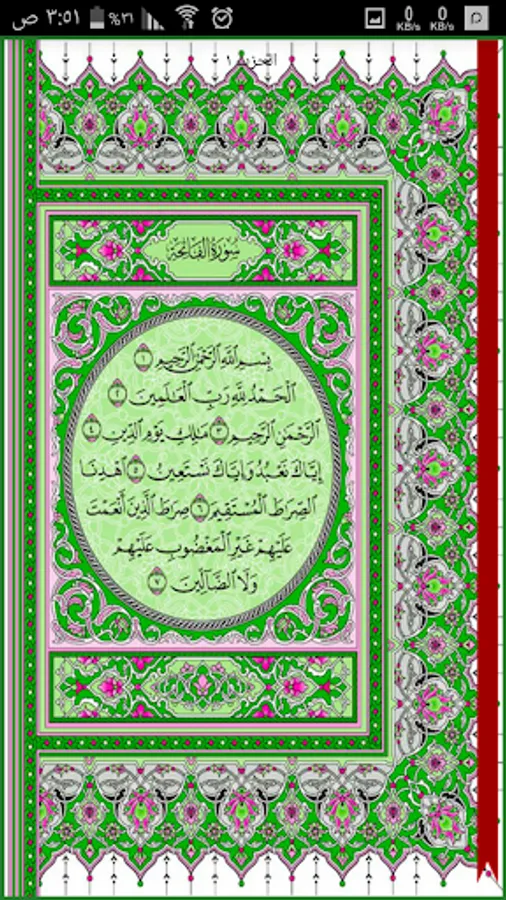 ص ٣:٥١ %٢١ 0 KB/s 0 KB/s
الحزب ١
سُورَةُ الفَاتِحَةِ
بِسْمِ ٱللَّهِ ٱلرَّحْمَٰنِ ٱلرَّحِيمِ ١
ٱلْحَمْدُ لِلَّهِ رَبِّ ٱلْعَٰلَمِينَ ٢
ٱلرَّحْمَٰنِ ٱلرَّحِيمِ ٣ مَٰلِكِ يَوْمِ ٱلدِّينِ ٤
إِيَّاكَ نَعْبُدُ وَإِيَّاكَ نَسْتَعِينُ ٥ ٱهْدِنَا
ٱلصِّرَٰطَ ٱلْمُسْتَقِيمَ ٦ صِرَٰطَ ٱلَّذِينَ أَنْعَمْتَ
عَلَيْهِمْ غَيْرِ ٱلْمَغْضُوبِ عَلَيْهِمْ
وَلَا ٱلضَّآلِّينَ ٧